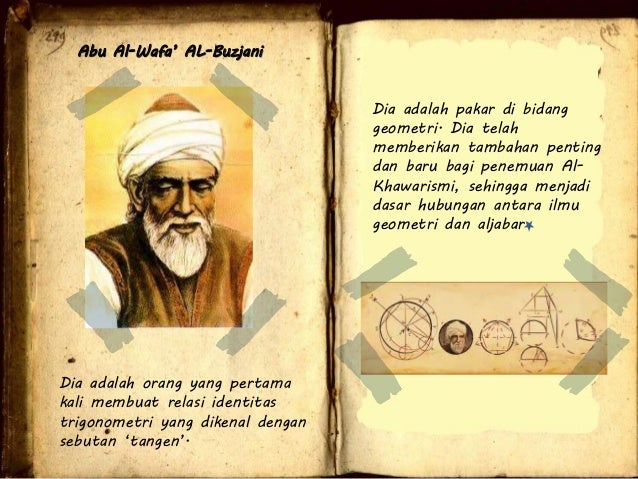 Abu Al-Wafa' AL-Buzjani
Dia adalah orang yang pertama
kali membuat relasi identitas
trigonometri yang dikenal dengan
sebutan 'tangen'.
Dia adalah pakar di bidang
geometri. Dia telah
memberikan tambahan penting
dan baru bagi penemuan Al-
Khawarismi, sehingga menjadi
dasar hubungan antara ilmu
geometri dan aljabar